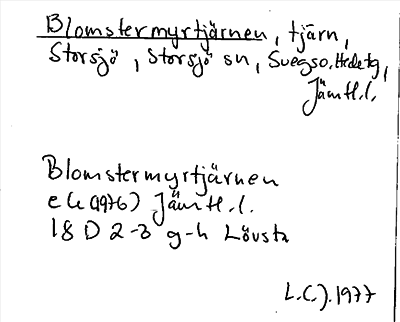 Blomstermyrtjärnen, tjärn,
Storsjö, Storsjö sn, Svegso.Hede tg,
Jämtl.l.
Blomstermyrtjärnen
ek (1976) Jämtl.l.
18 D 2-3 g-h Lövsta
L.C.J. 1977